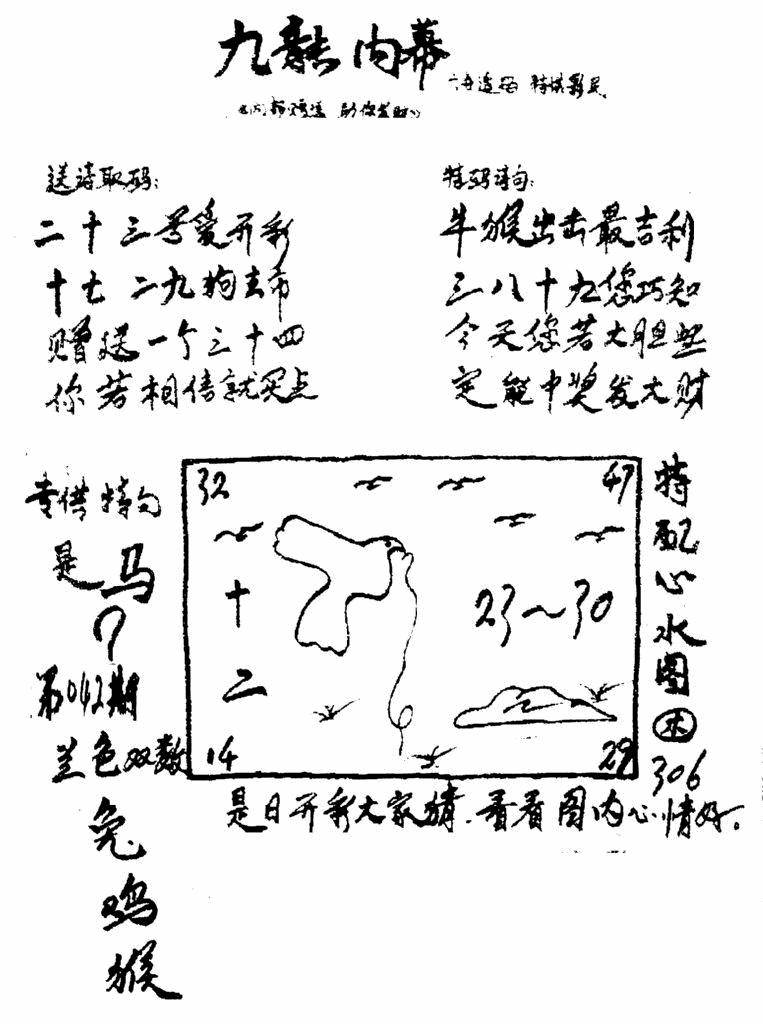 九龙内幕
特供彩民
送诗取码:
二十三号爱开彩
十七 二九狗去市
赠送一个三十四
你若相信就买点
特码诗句:
牛猴出击最吉利
三八十九您巧知
今天您若大胆些
定能中奖发大财
专供特句
是马
?
第042期
兰色双数
兔
鸡
猴
32
47
十二
23~30
14
29
特配心水图
木
306
是日开彩大家猜.看看图内心情好.